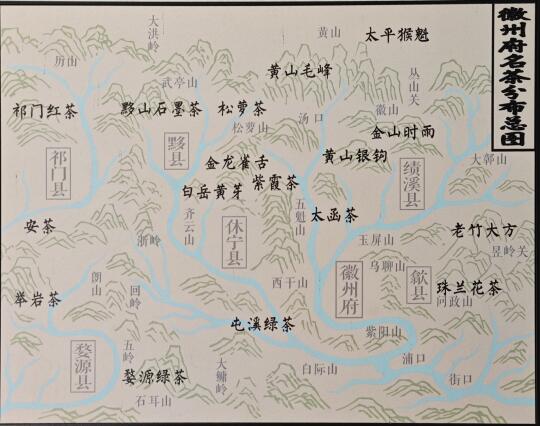 徽州府名茶分布总图
大洪岭
黄山
太平猴魁
历山
武亭山
黄山毛峰
丛山关
祁门红茶
黟山石墨茶
松萝茶
汤口
徽山
松萝山
金山时雨
祁门县
黟县
金龙雀舌
黄山银钩
绩溪县
大鄣山
白岳黄芽
紫霞茶
五魁山
太函茶
安茶
齐云山
休宁县
浙岭
玉屏山
老竹大方
昱岭关
乌聊山
朗山
回岭
西干山
徽州府
歙县
珠兰花茶
问政山
举岩茶
屯溪绿茶
紫阳山
五岭
浦口
婺源县
婺源绿茶
大鳙岭
白际山
街口
石耳山